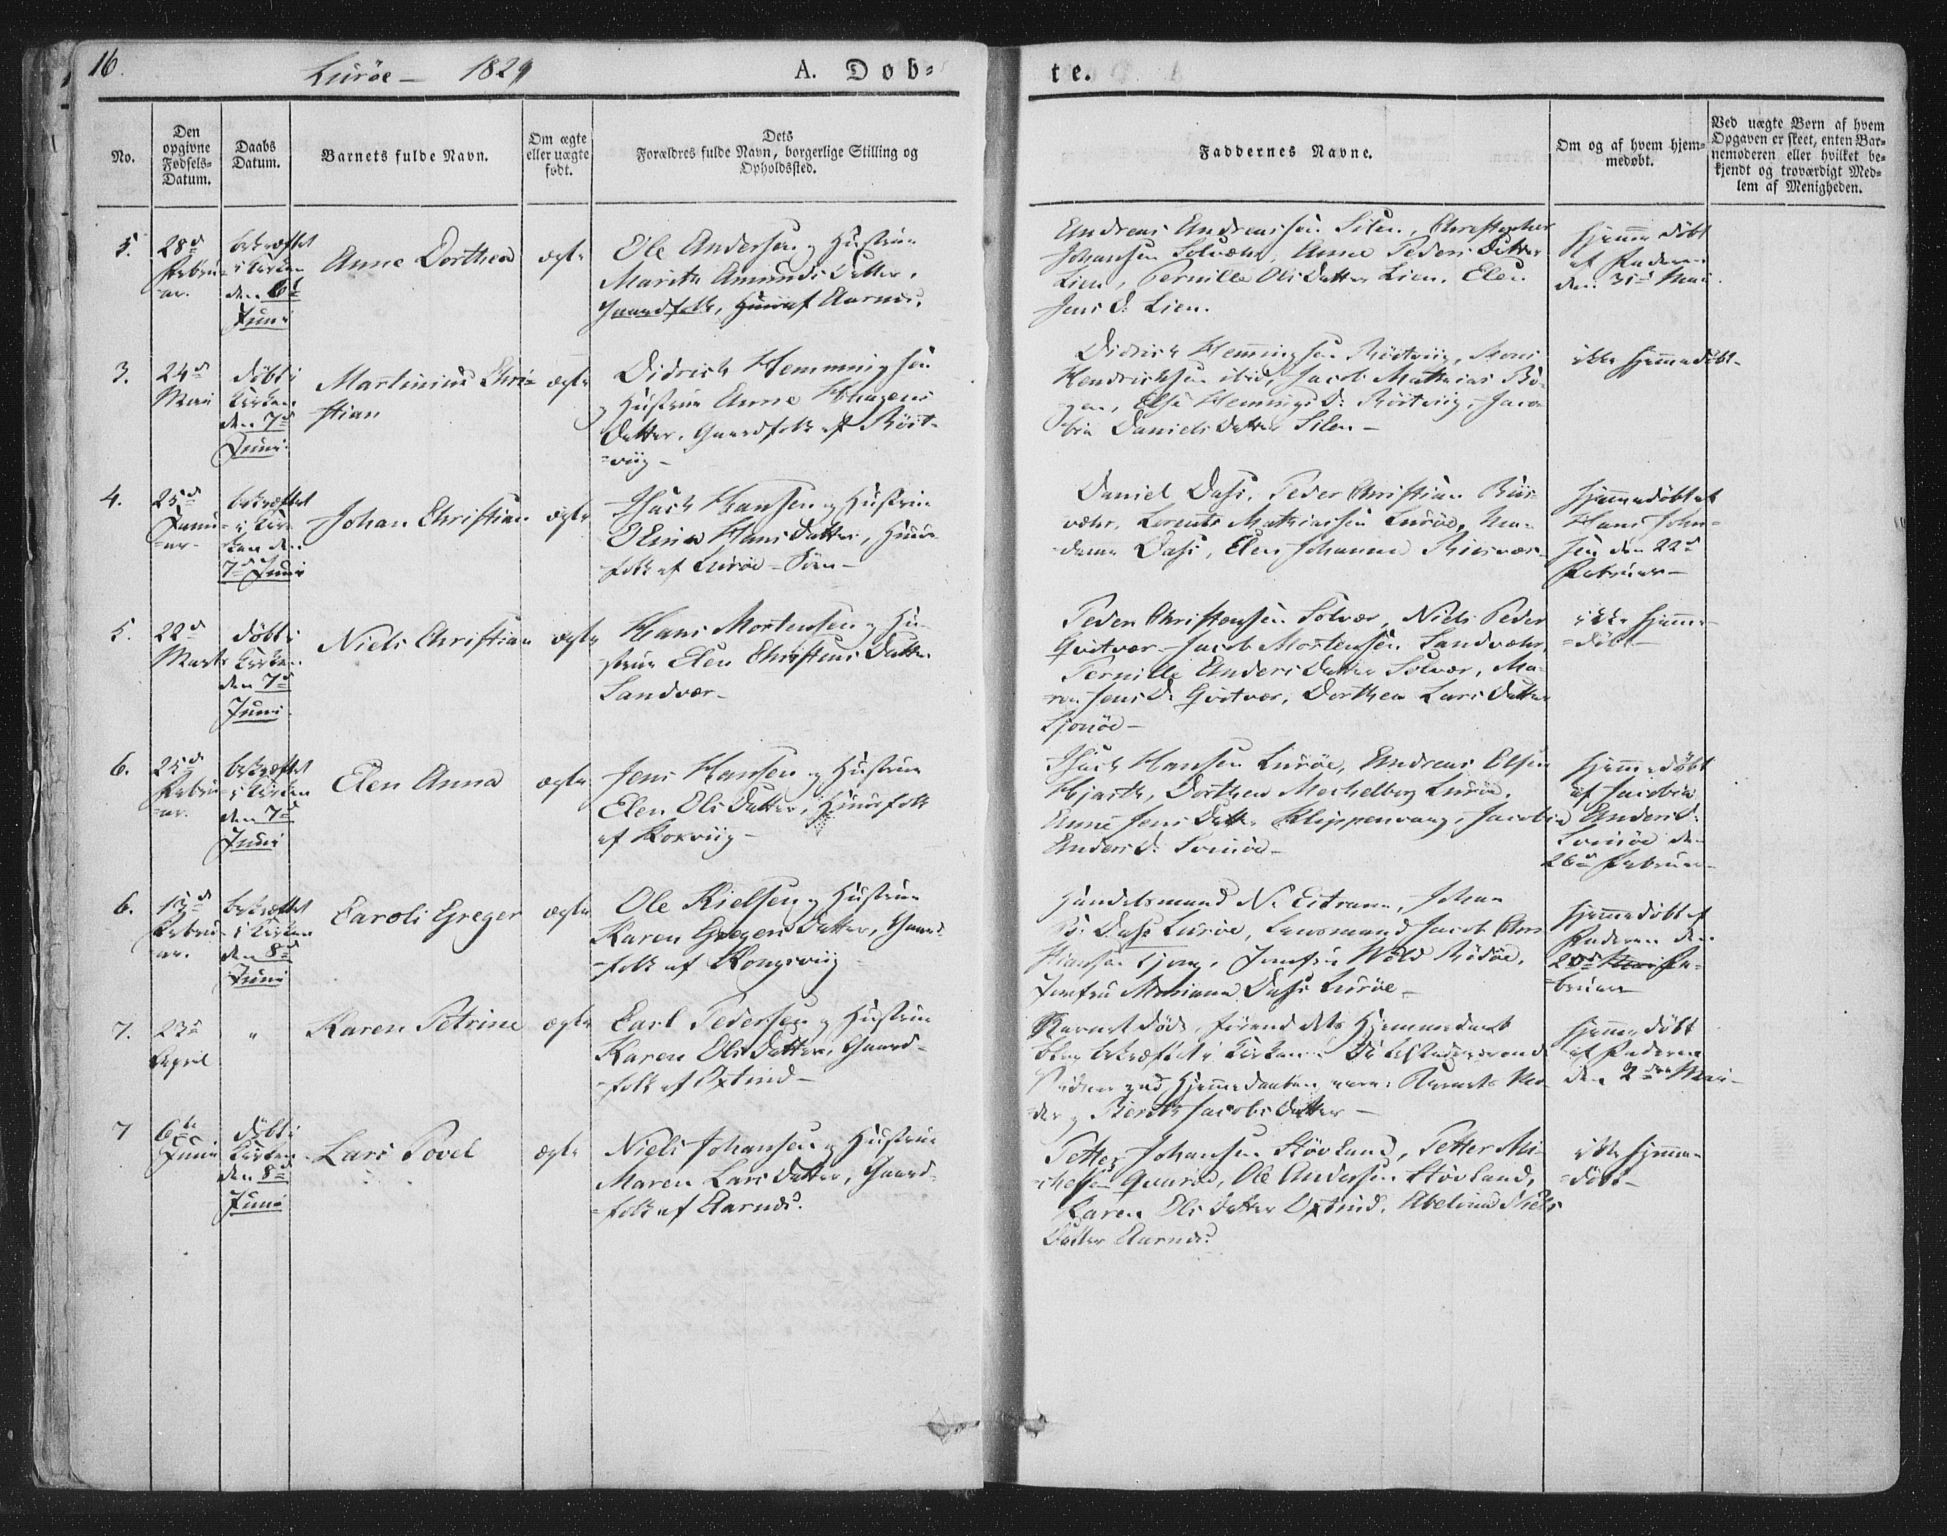 16.
Lurøe – 1829
A. Døb=
te.
No.
Den
opgivne
Fødsels-
Datum.
Daabs
Datum.
Barnets fulde Navn.
Om ægte
eller uægte
født.
Dets
Forældres fulde Navn, borgerlige Stilling og
Opholdssted.
Faddernes Navne.
Om og af hvem hjem=
medøbt.
Ved uægte Børn af hvem
Opgaven er skeet, enten Bar=
nemoderen eller hvilket be=
kjendt og troværdigt Med=
lem af Menigheden.
5.
28d
Febru
=ar.
bekræftet
i Kirken
den 6t
Juni
Anne Dorthea
ægte
Ole Andersen og Hustrue
Marith Amunds Datter,
Gaardfolk, af Aarnes.
Andreas Andreassen Silen, Christopher
Johansen Solvær, Anne Peders Datter
Lien, Pernille Ols Datter Lien, Elen
Jens D. Lien.
hjemme døbt
af Faderen
den 31d Mai.
3.
24d
Mai
døbt i
Kirken
den 7d
Juni.
Martinius Chri=
stian
ægte
Didrich Hemmingsen
og Hustrue Anne
Datter, Gaardfolk af Röit=
=viig –
Didrich Hemmingsen Röitviig,
Hendrichsen ibid, Jacob Mathias Bö=
gen, Else Hemmings D. Röitviig, Jaco=
bia Daniels Datter Silen –
ikke hjemmedøbt –
4.
25d
Janu=
=ar.
bekræftet
i Kir=
ken den
7d Juni
Johan Christian
ægte
Isach Hansen og Hustrue
Olina Hans Datter, Huus=
folk af Lurøe –
Daniel Dass, Peder Christian
vær, Lorents Mathiassen Lurøe, Ma=
dame Dass, Elen Johanna
hjemmedøbt af
Hans John=
sen den 22d
Februar –
5.
22d
Marts
døbt i
Kirken
den 7d
Juni.
Niels Christian
ægte
Hans Mortensen og Hu=
strue Elen Christens Datter
Sandvær –
Peder Christensen Solvær, Niels Peder
Qvitvær – Jacob Mortensen Sandvær,
Pernille Anders Datter Solvær, Ma=
ren Jens D. Qvitvær, Dorthea Lars Datter
ikke hjemme=
=døbt –
6.
25d
Febru
=ar.
bekræftet
i Kirken
den 7d
Juni
Elen Anna
ægte
Jens Hansen og Hustrue
Elen Ols Datter, Huusfolk
af Korviig –
Isach Hansen Lurøe, Andreas Olsen
Hjarth, Dorthea Lurøe,
Anne Jens Datter Klippenvaag, Jacobia
Anders D. Sviinøe –
hjemmedøbt
af Jacobia
Anders D.
Sviinøe den
26d Februar –
6.
Febru
=ar.
bekræftet
i Kirken
den 8d
Juni
Caroli Greger
ægte
Ole Nielsen og Hustrue
Karen Gregers Datter, Gaard=
=folk af Kongsviig –
Handelsmand N. Eitrann, Johan
Dass Lurøe, Lensmand Jacob Chri=
stiansen Tjong, Jomfru Wold Rødøe,
Jomfru Mariana Dass Lurøe –
hjemmedøbt af
Faderen den
20d Fe=
=bruar
7.
23d
April
„
Karen Petrine
ægte
Carl Pedersen og Hustrue
Karen Ols Datter, Gaard=
=folk af Oxtind –
Barnet døde, førend dets Hjemmedaab
blev bekræftet i Kirken.
Vidner ved Hjemmedaaben vare: Barnets Mo=
der og Jacobs Datter –
hjemmedøbt
af Faderen
den 2den Mai –
7
6te
Juni
døbt i
Kirken
den 8d
Juni
Lars Povel
ægte
Niels Johansen og Hustrue
Maren Lars Datter, Gaard=
=folk af Aarnes.
Petter Johansen Støvland, Petter Mi=
chelsen Ole Andersen Støvland,
Karen Ols Datter Oxtind, Abelvina Niels
Datter Aarnes.
ikke hjemme=
=døbt –